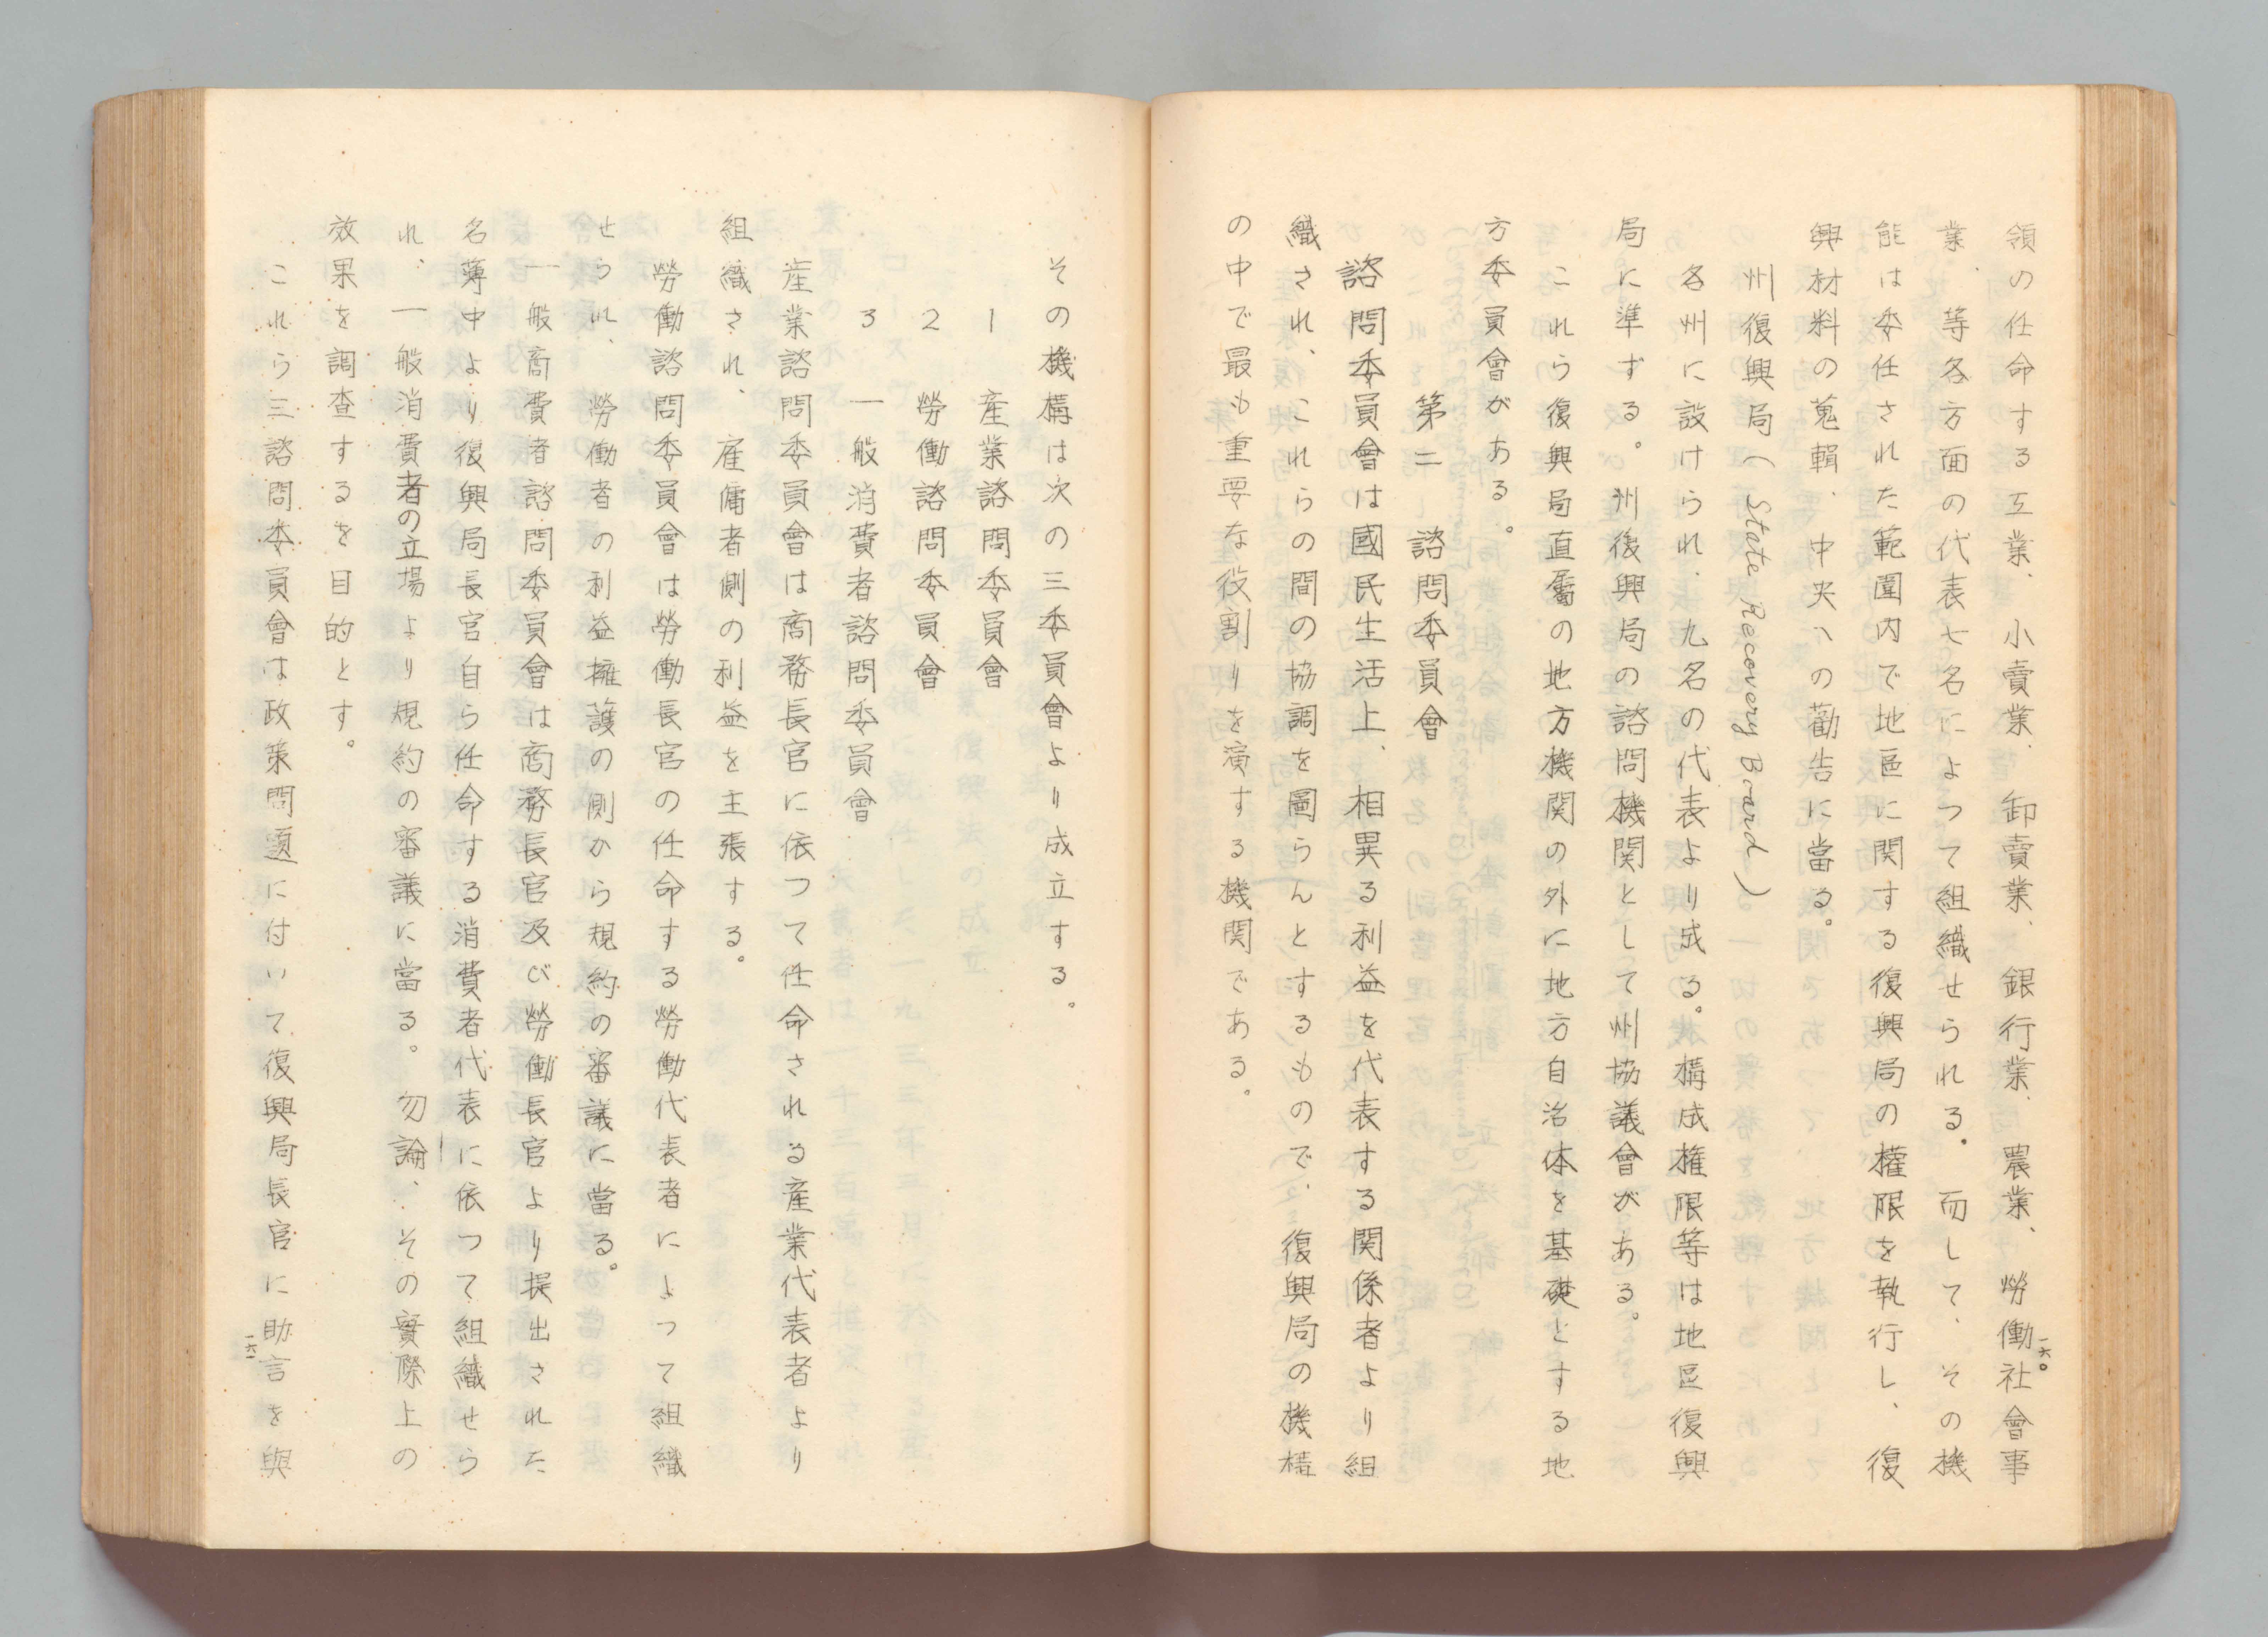 領の任命する工業、小賣業、卸賣業、銀行業、農業、勞働社會事
業、等各方面の代表七名によつて組織せられる。而して、その機
能は委任された範圍内で地區に関する復興局の權限を執行し、復
興材料の蒐輯、中央への勸告に當る。
州復興局(State Recovery Board)
各州に設けられ、九名の代表より成る。構成権限等は地區復興
局に準ずる。州復興局の諮問機関として州協議會がある。
これら復興局直屬の地方機関の外に地方自治体を基礎とする地
方委員會がある。
第二 諮問委員會
諮問委員會は國民生活上、相異る利益を代表する関係者より組
織され、これらの間の協調を圖らんとするもので、復興局の機構
の中で最も重要な役割りを演する機関である。
一六〇
その機構は次の三委員會より成立する。
1 産業諮問委員會
2 勞働諮問委員會
3 一般消費者諮問委員會
産業諮問委員會は商務長官に依つて任命される産業代表者より
組織され、雇傭者側の利益を主張する。
勞働諮問委員會は勞働長官の任命する勞働代表者によつて組織
せられ、勞働者の利益擁護の側から規約の審議に當る。
一般商費者諮問委員會は商務長官及び勞働長官より提出された
名薄中より復興局長官自ら任命する消費者代表に依つて組織せら
れ、一般消費者の立場より規約の審議に當る。勿論、その實際上の
效果を調査するを目的とす。
これら三諮問委員會は政策問題に付いて復興局長官に助言を與
一六一